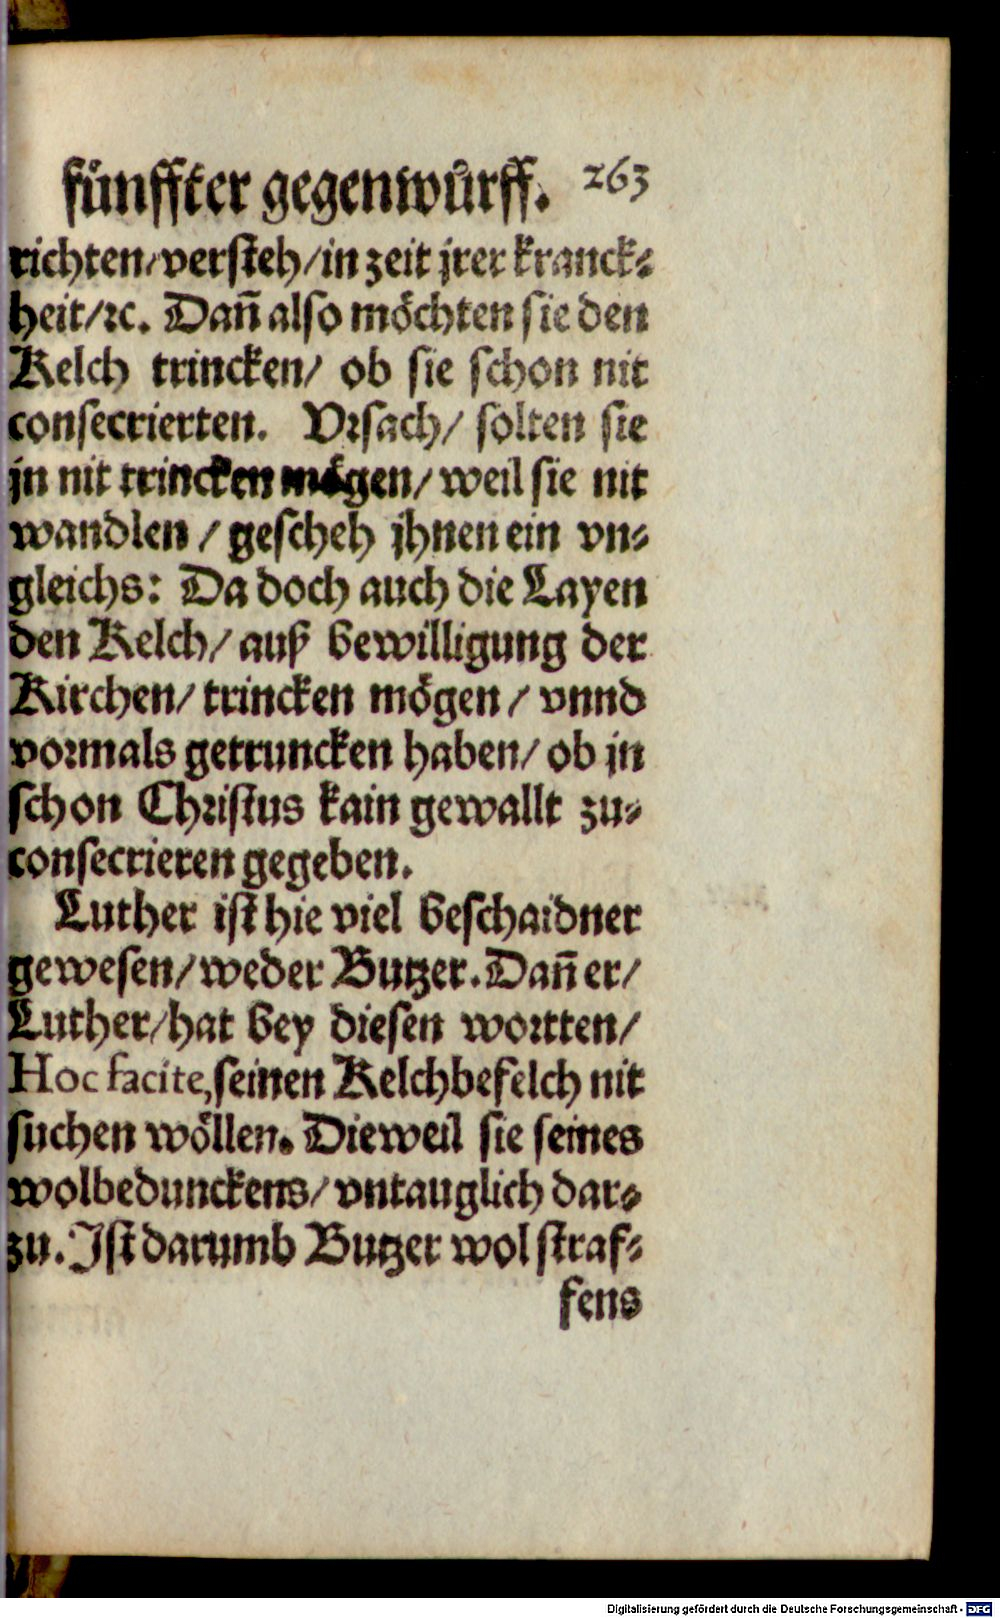 fünffter gegenwürff. 263
richten/versteh/in zeit jrer kranck⸗
heit/ꝛc. Dañ also möchten sie den
Kelch trincken/ ob sie schon nit
consecrierten. Vrsach/ solten sie
jn nit trincken mögen/ weil sie nit
wandlen / gescheh jhnen ein vn⸗
gleichs: Da doch auch die Layen
den Kelch/ auß bewilligung der
Kirchen/ trincken mögen / vnnd
vormals getruncken haben/ ob jn
schon Christus kain gewallt zu⸗
consecrieren gegeben.
Luther ist hie viel beschaidner
gewesen/ weder Butzer. Dañ er/
Luther/hat bey diesen wortten/
Hoc facite, seinen Kelchbefelch nit
suchen wöllen. Dieweil sie seines
wolbedunckens/ vntauglich dar⸗
zu. Ist darumb Butzer wol straf⸗
fens
Digitalisierung gefördert durch die Deutsche Forschungsgemeinschaft - DFG